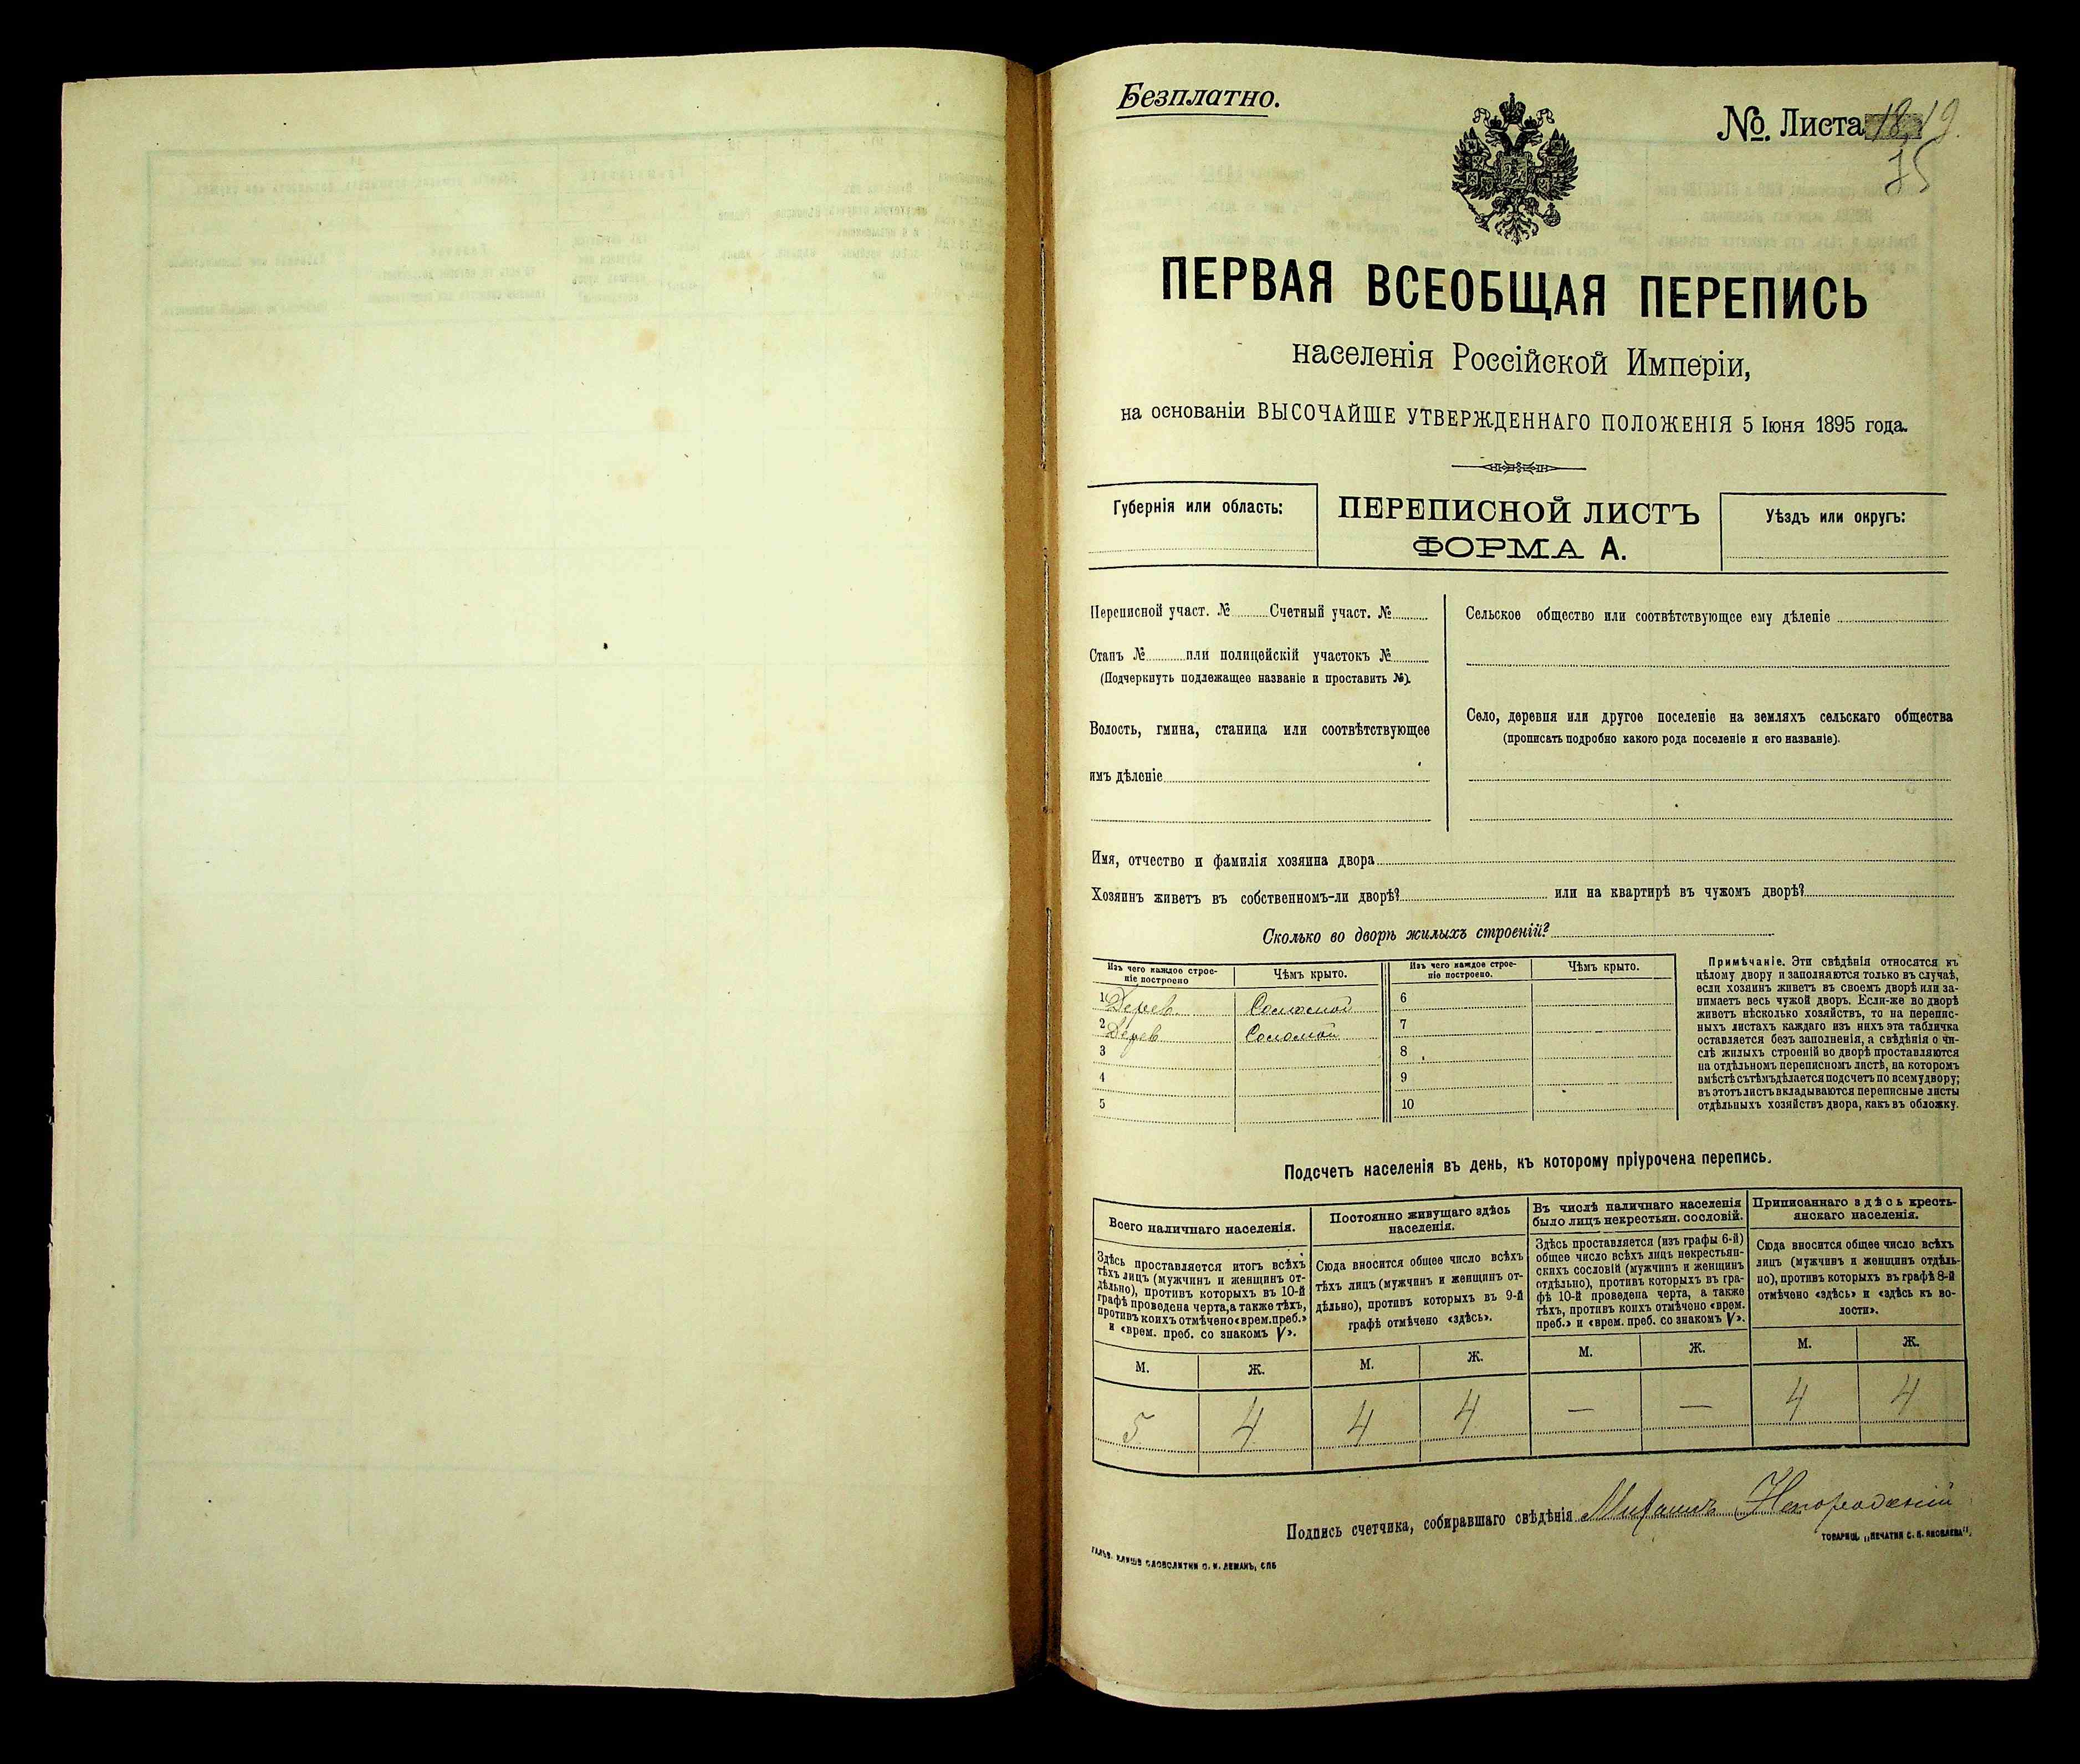 Безплатно.
№. Листа 19.
75
ПЕРВАЯ ВСЕОБЩАЯ ПЕРЕПИСЬ
населенія Россійской Имперіи,
на основаніи ВЫСОЧАЙШЕ УТВЕРЖДЕННАГО ПОЛОЖЕНІЯ 5 Іюня 1895 года.
Губернія или область:
ПЕРЕПИСНОЙ ЛИСТЪ
ФОРМА А.
Уѣздъ или округъ:
Переписной участ. № Счетный участ. №
Станъ № или полицейскій участокъ №
(Подчеркнуть подлежащее названіе и проставить №).
Волость, гмина, станица или соотвѣтствующее
имъ дѣленіе
Сельское общество или соотвѣтствующее ему дѣленіе
Село, деревня или другое поселеніе на земляхъ сельскаго общества
(прописать подробно какого рода поселеніе и его названіе).
Имя, отчество и фамилія хозяина двора
Хозяинъ живетъ въ собственномъ-ли дворѣ? или на квартирѣ въ чужомъ дворѣ?
Сколько во дворѣ жилыхъ строеній?
Изъ чего каждое строе-
ніе построено
Чѣмъ крыто.
Изъ чего каждое строе-
ніе построено.
Чѣмъ крыто.
1 Дерев. Соломой 6
2 Дерев Соломой 7
3 8
4 9
5 10
Примѣчаніе. Эти свѣдѣнія относятся къ
цѣлому двору и заполняются только въ случаѣ,
если хозяинъ живетъ въ своемъ дворѣ или за-
нимаетъ весь чужой дворъ. Если-же во дворѣ
живетъ нѣсколько хозяйствъ, то на перепис-
ныхъ листахъ каждаго изъ нихъ эта табличка
оставляется безъ заполненія, а свѣдѣнія о чи-
слѣ жилыхъ строеній во дворѣ проставляются
на отдѣльномъ переписномъ листѣ, на которомъ
вмѣстѣ съ тѣмъ дѣлается подсчетъ по всему двору;
въ этотъ листъ вкладываются переписные листы
отдѣльныхъ хозяйствъ двора, какъ въ обложку.
Подсчетъ населенія въ день, къ которому пріурочена перепись.
Всего наличнаго населенія.
Здѣсь проставляется итогъ всѣхъ
тѣхъ лицъ (мужчинъ и женщинъ от-
дѣльно), противъ которыхъ въ 10-й
графѣ проведена черта, а также тѣхъ,
противъ коихъ отмѣчено «врем. преб.»
и «врем. преб. со знакомъ V».
Постоянно живущаго здѣсь
населенія.
Сюда вносится общее число всѣхъ
тѣхъ лицъ (мужчинъ и женщинъ от-
дѣльно), противъ которыхъ въ 9-й
графѣ отмѣчено «здѣсь».
Въ числѣ наличнаго населенія
было лицъ некрестьян. сословій.
Здѣсь проставляется (изъ графы 6-й)
общее число всѣхъ лицъ некрестьян-
скихъ сословій (мужчинъ и женщинъ
отдѣльно), противъ которыхъ въ гра-
фѣ 10-й проведена черта, а также
тѣхъ, противъ коихъ отмѣчено «врем.
преб.» и «врем. преб. со знакомъ V».
Приписаннаго здѣсь кресть-
янскаго населенія.
Сюда вносится общее число всѣхъ
лицъ (мужчинъ и женщинъ отдѣль-
но), противъ которыхъ въ графѣ 8-й
отмѣчено «здѣсь» и «здѣсь къ во-
лости».
М. Ж. М. Ж. М. Ж. М. Ж.
5 4 4 4 — — 4 4
Подпись счетчика, собиравшаго свѣдѣнія
ТОВАРИЩ. „ПЕЧАТНЯ С. П. ЯКОВЛЕВА".
ГАЛЬВ. КЛИШЕ СЛОВОЛИТНИ О. И. ЛЕМАНЪ, СПБ